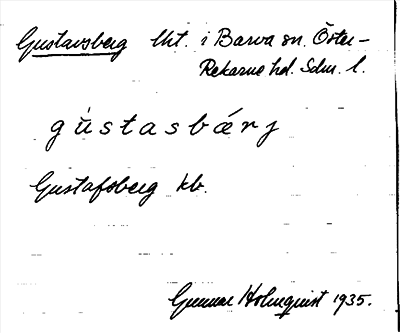 Gustavsberg lht. i Barva sn. Öster-
Rekarne hd. Sdm. l.
gùstasbárj
Gustafsberg kb.
Gunnar Holmquist 1935.